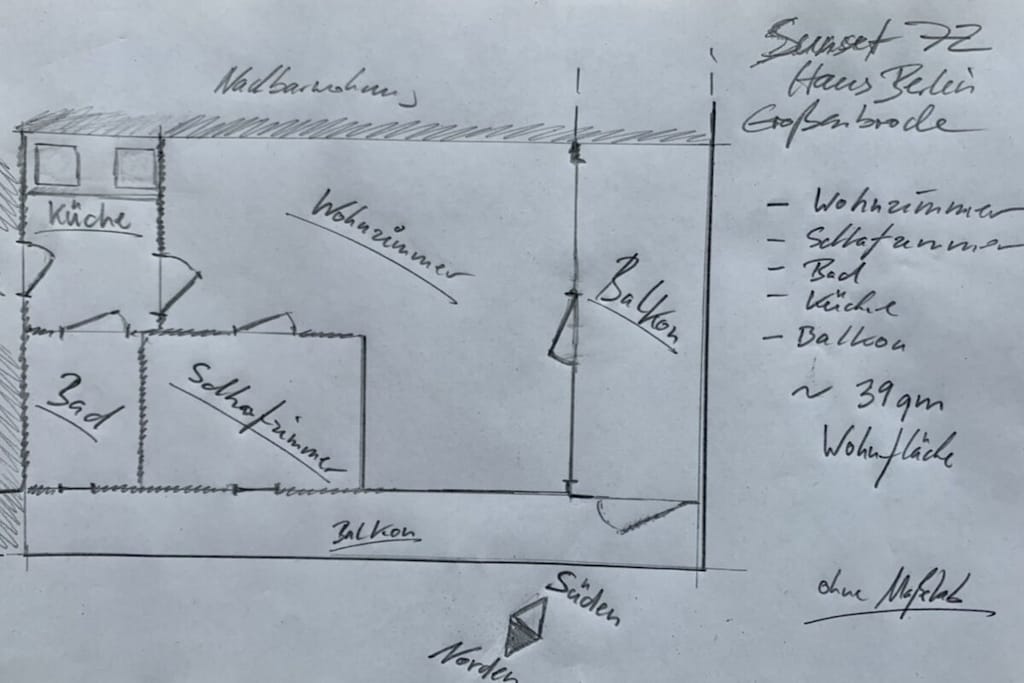 Sunset 72
Haus Berlin
Großenbrode
Nachbarwohnung
Küche
Wohnzimmer
Balkon
Bad
Schlafzimmer
Balkon
- Wohnzimmer
- Schlafzimmer
- Bad
- Küche
- Balkon
~ 39 qm
Wohnfläche
ohne Maßstab
Süden
Norden